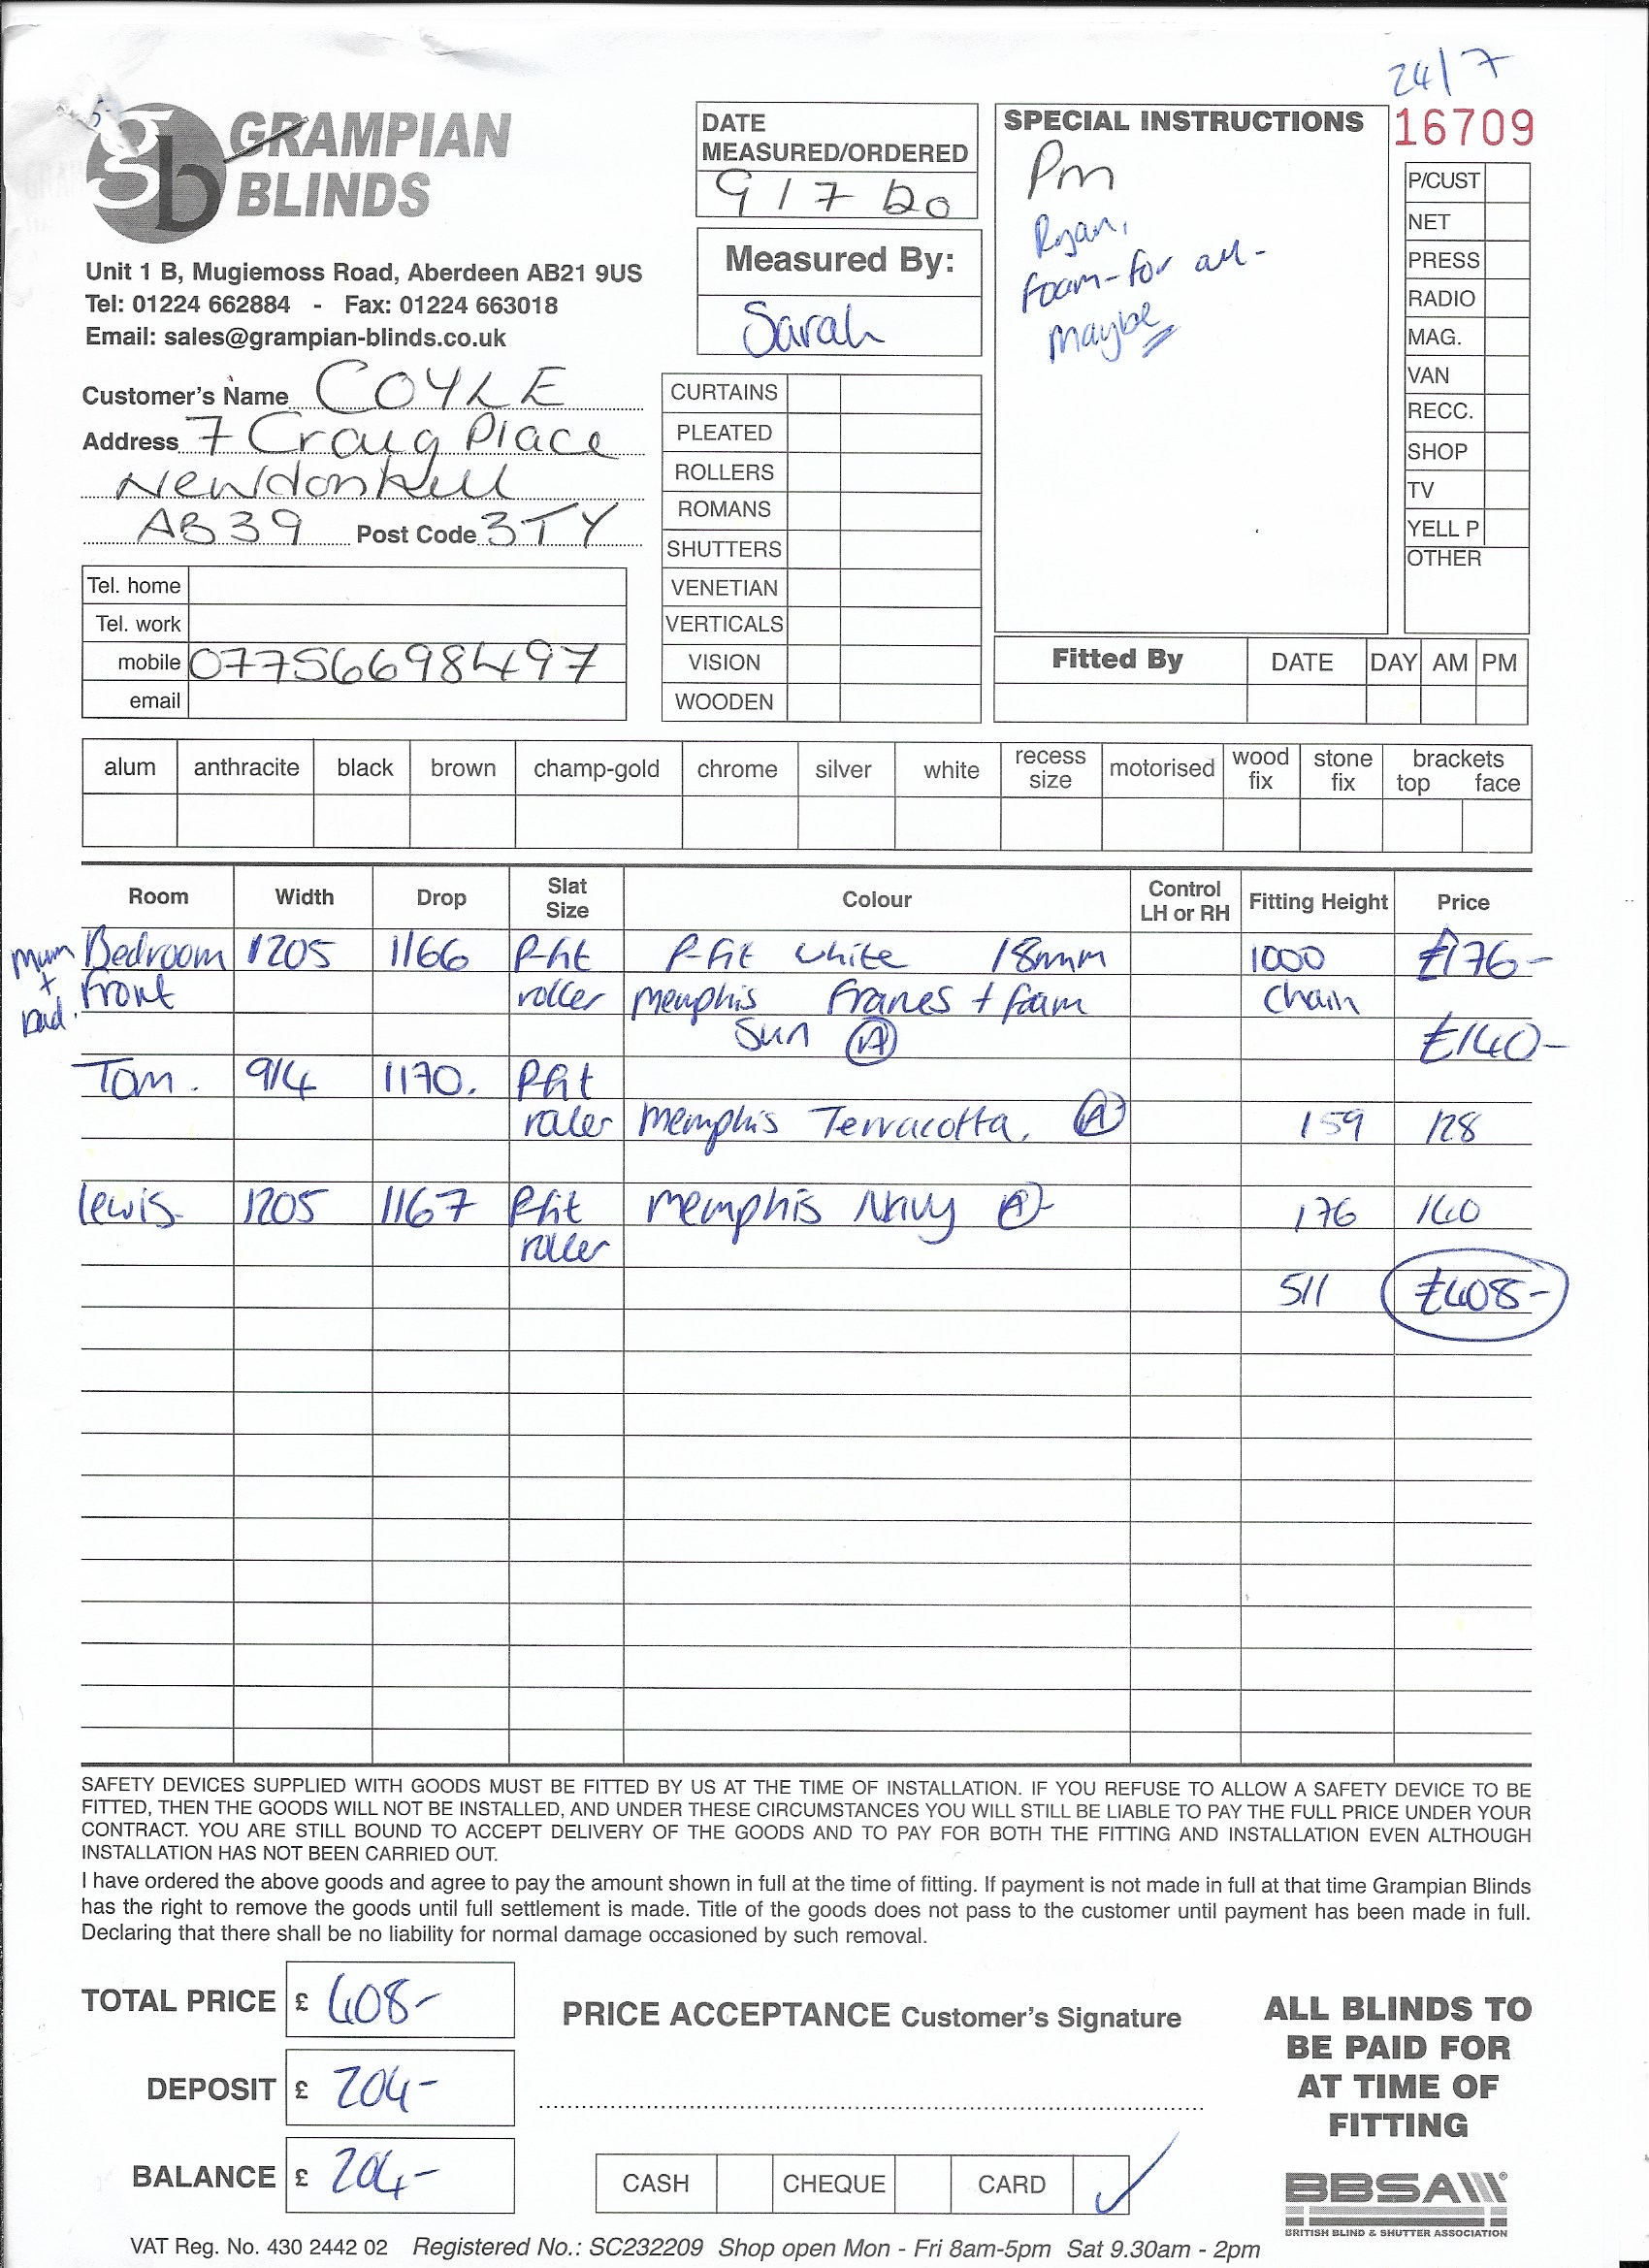 24/7
GRAMPIAN
BLINDS
gb
Unit 1 B, Mugiemoss Road, Aberdeen AB21 9US
Tel: 01224 662884 - Fax: 01224 663018
Email: sales@grampian-blinds.co.uk
Customer's Name COYLE
Address 7 Craig Place
Newtonhill
AB39 Post Code 3TY
Tel. home
Tel. work
mobile 07756698497
email
DATE
MEASURED/ORDERED
9/7 20
Measured By:
Sarah
CURTAINS
PLEATED
ROLLERS
ROMANS
SHUTTERS
VENETIAN
VERTICALS
VISION
WOODEN
SPECIAL INSTRUCTIONS
Pm
Ryan,
foam - for all -
Maybe
16709
P/CUST
NET
PRESS
RADIO
MAG.
VAN
RECC.
SHOP
TV
YELL P
OTHER
Fitted By DATE DAY AM PM
alum anthracite black brown champ-gold chrome silver white recess size motorised wood fix stone fix brackets top face
Room Width Drop Slat Size Colour Control LH or RH Fitting Height Price
Mum + Dad. Bedroom 1205 1166 P-fit P-fit white 18mm 1000 £176-
Front roller Memphis Frames + foam chain
Sun A £140-
Tom. 914 1170. P.fit
roller Memphis Terracotta. A 159 128
Lewis 1205 1167 P.fit Memphis Navy A- 176 140
roller
511 £408-
SAFETY DEVICES SUPPLIED WITH GOODS MUST BE FITTED BY US AT THE TIME OF INSTALLATION. IF YOU REFUSE TO ALLOW A SAFETY DEVICE TO BE
FITTED, THEN THE GOODS WILL NOT BE INSTALLED, AND UNDER THESE CIRCUMSTANCES YOU WILL STILL BE LIABLE TO PAY THE FULL PRICE UNDER YOUR
CONTRACT. YOU ARE STILL BOUND TO ACCEPT DELIVERY OF THE GOODS AND TO PAY FOR BOTH THE FITTING AND INSTALLATION EVEN ALTHOUGH
INSTALLATION HAS NOT BEEN CARRIED OUT.
I have ordered the above goods and agree to pay the amount shown in full at the time of fitting. If payment is not made in full at that time Grampian Blinds
has the right to remove the goods until full settlement is made. Title of the goods does not pass to the customer until payment has been made in full.
Declaring that there shall be no liability for normal damage occasioned by such removal.
TOTAL PRICE £ 408-
DEPOSIT £ 204-
BALANCE £ 204-
PRICE ACCEPTANCE Customer's Signature
CASH CHEQUE CARD ✓
ALL BLINDS TO
BE PAID FOR
AT TIME OF
FITTING
BBSA
BRITISH BLIND & SHUTTER ASSOCIATION
VAT Reg. No. 430 2442 02 Registered No.: SC232209 Shop open Mon - Fri 8am-5pm Sat 9.30am - 2pm